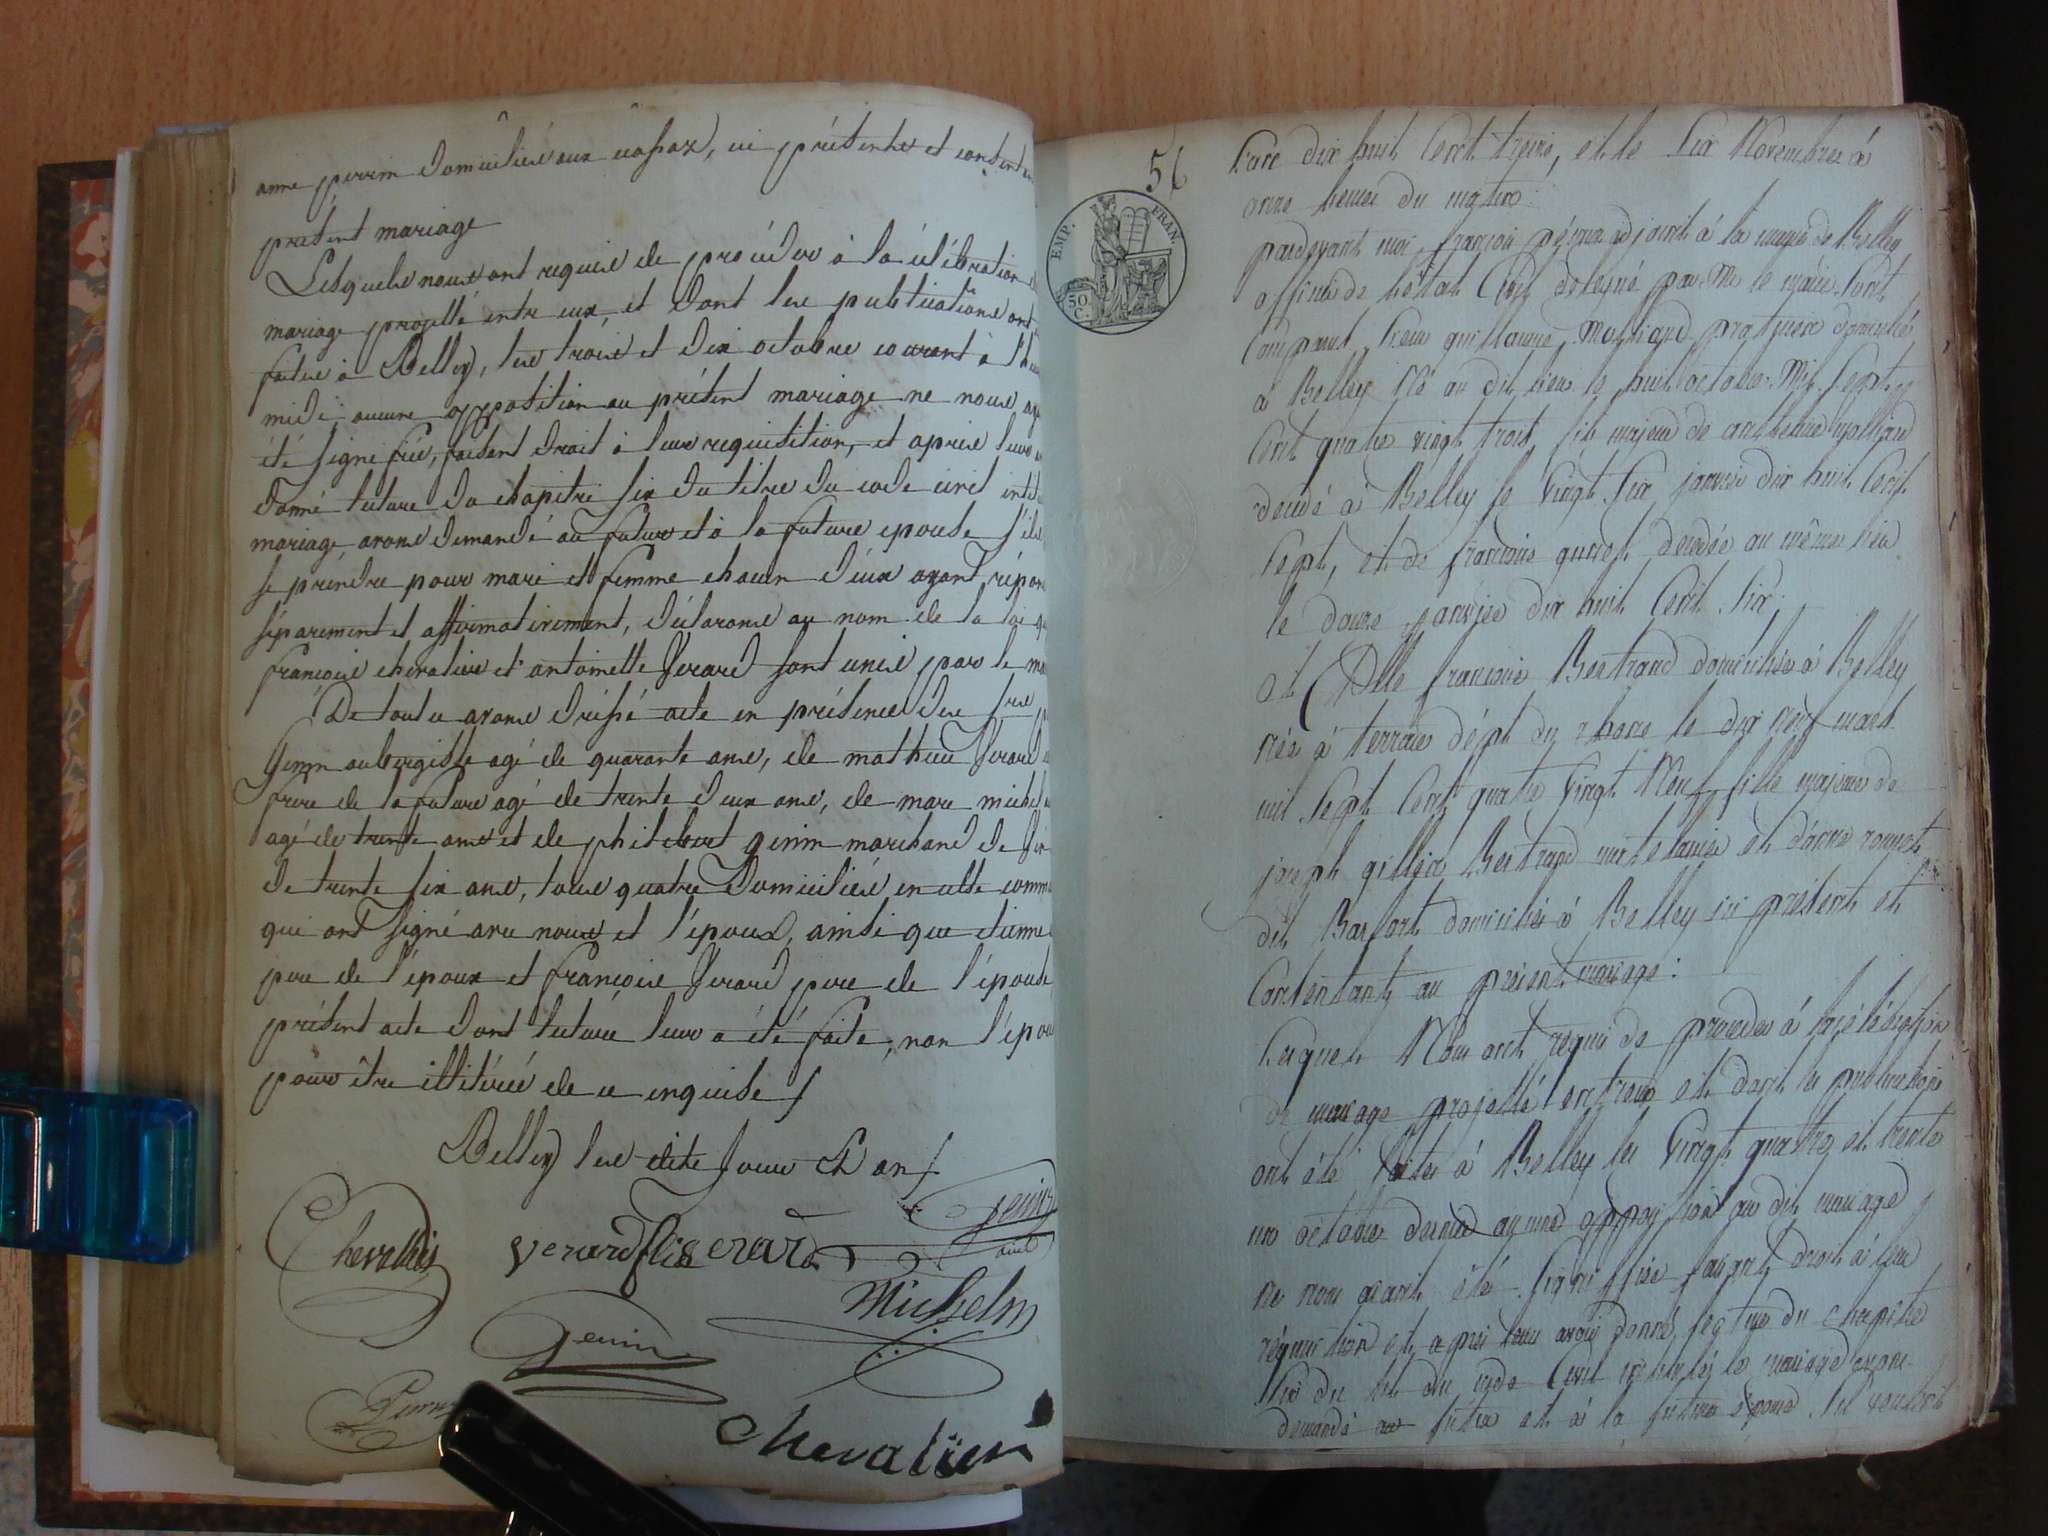 anne perrin domiciliés aux ecassaz, ici présents et consentant
présent mariage
Lesquels nous ont requis de procéder à la célébration
mariage projetté entre eux, et dont les publications ont
faites à Belley, les trois et dix octobre courant à l'heure
midi aucune opposition au présent mariage ne nous
été signifiée, faisant droit à leur requisition, et après leur
donné lecture du chapitre six du titre du code civil intit
mariage, avons demandé au futur et à la future epouse s'ils
se prendre pour mari et femme chacun d'eux ayant répon
séparement et affirmativement, déclarons au nom de la loi
françois chevalier et antoinette Verard sont unis par le ma
De tout ce avons dréssé acte en présence des srs
Genin aubergiste agé de quarante ans, de mathieu Verard
frère de la future agé de trente deux ans, de marc michel
agé de trente ans et de philibert genin marchand de
de trente six ans, tous quatre domiciliés en cette comm
qui ont signé avec nous et l'époux, ainsi que etienne
pere de l'époux et françois Verard pere de l'épouse
présent acte dont lecture leur a été faite, non l'épou
pour être illitérée de ce enquise /
Belley les dits jour et an /.
Chevallier verard fils verard Genin
ainé
Michel
Genin
chevalier
56
EMP. FRAN.
50 C.
L'an dix huit Cent treize, et le Six Novembre à
onze heures du matin
pardevant moi, françois adjoint à la mairie de Belley
officier de l'état Civil délégué par Mr le maire Sont
Comparus, Sieur guillaume Molliard domicilié
à Belley Né au dit lieu le huit octobre Mil Sept
Cent quatre vingt trois, fils majeur de anthelme Molliard
decedé à Belley le Vingt Six janvier dix huit Cent
Sept, et de françoise decedée au même lieu
le douze janvier dix huit Cent Six.
et Dlle françoise Bertrand domiciliée à Belley
Née à dépt du rhone le dix neuf mars
mil Sept Cent quatre Vingt Neuf fille majeure de
joseph Bertrand et d'anne
dit domiciliés à Belley ici présents et
Consentants au présent mariage :
Lesquels Nous ont requis de proceder à la célébration
de mariage projetté entreux et dont les publications
ont été faites à Belley les Vingt quatre et trente
un octobre dernier aucune opposition au dit mariage
ne nous ayant été Signiffiée faisant droit à leur
réquisition et après leur avoir donné lecture du chapitre
Six du tit. du code Civil intitulé le mariage avons
demandé au futur et à la future épouse s'ils veulent